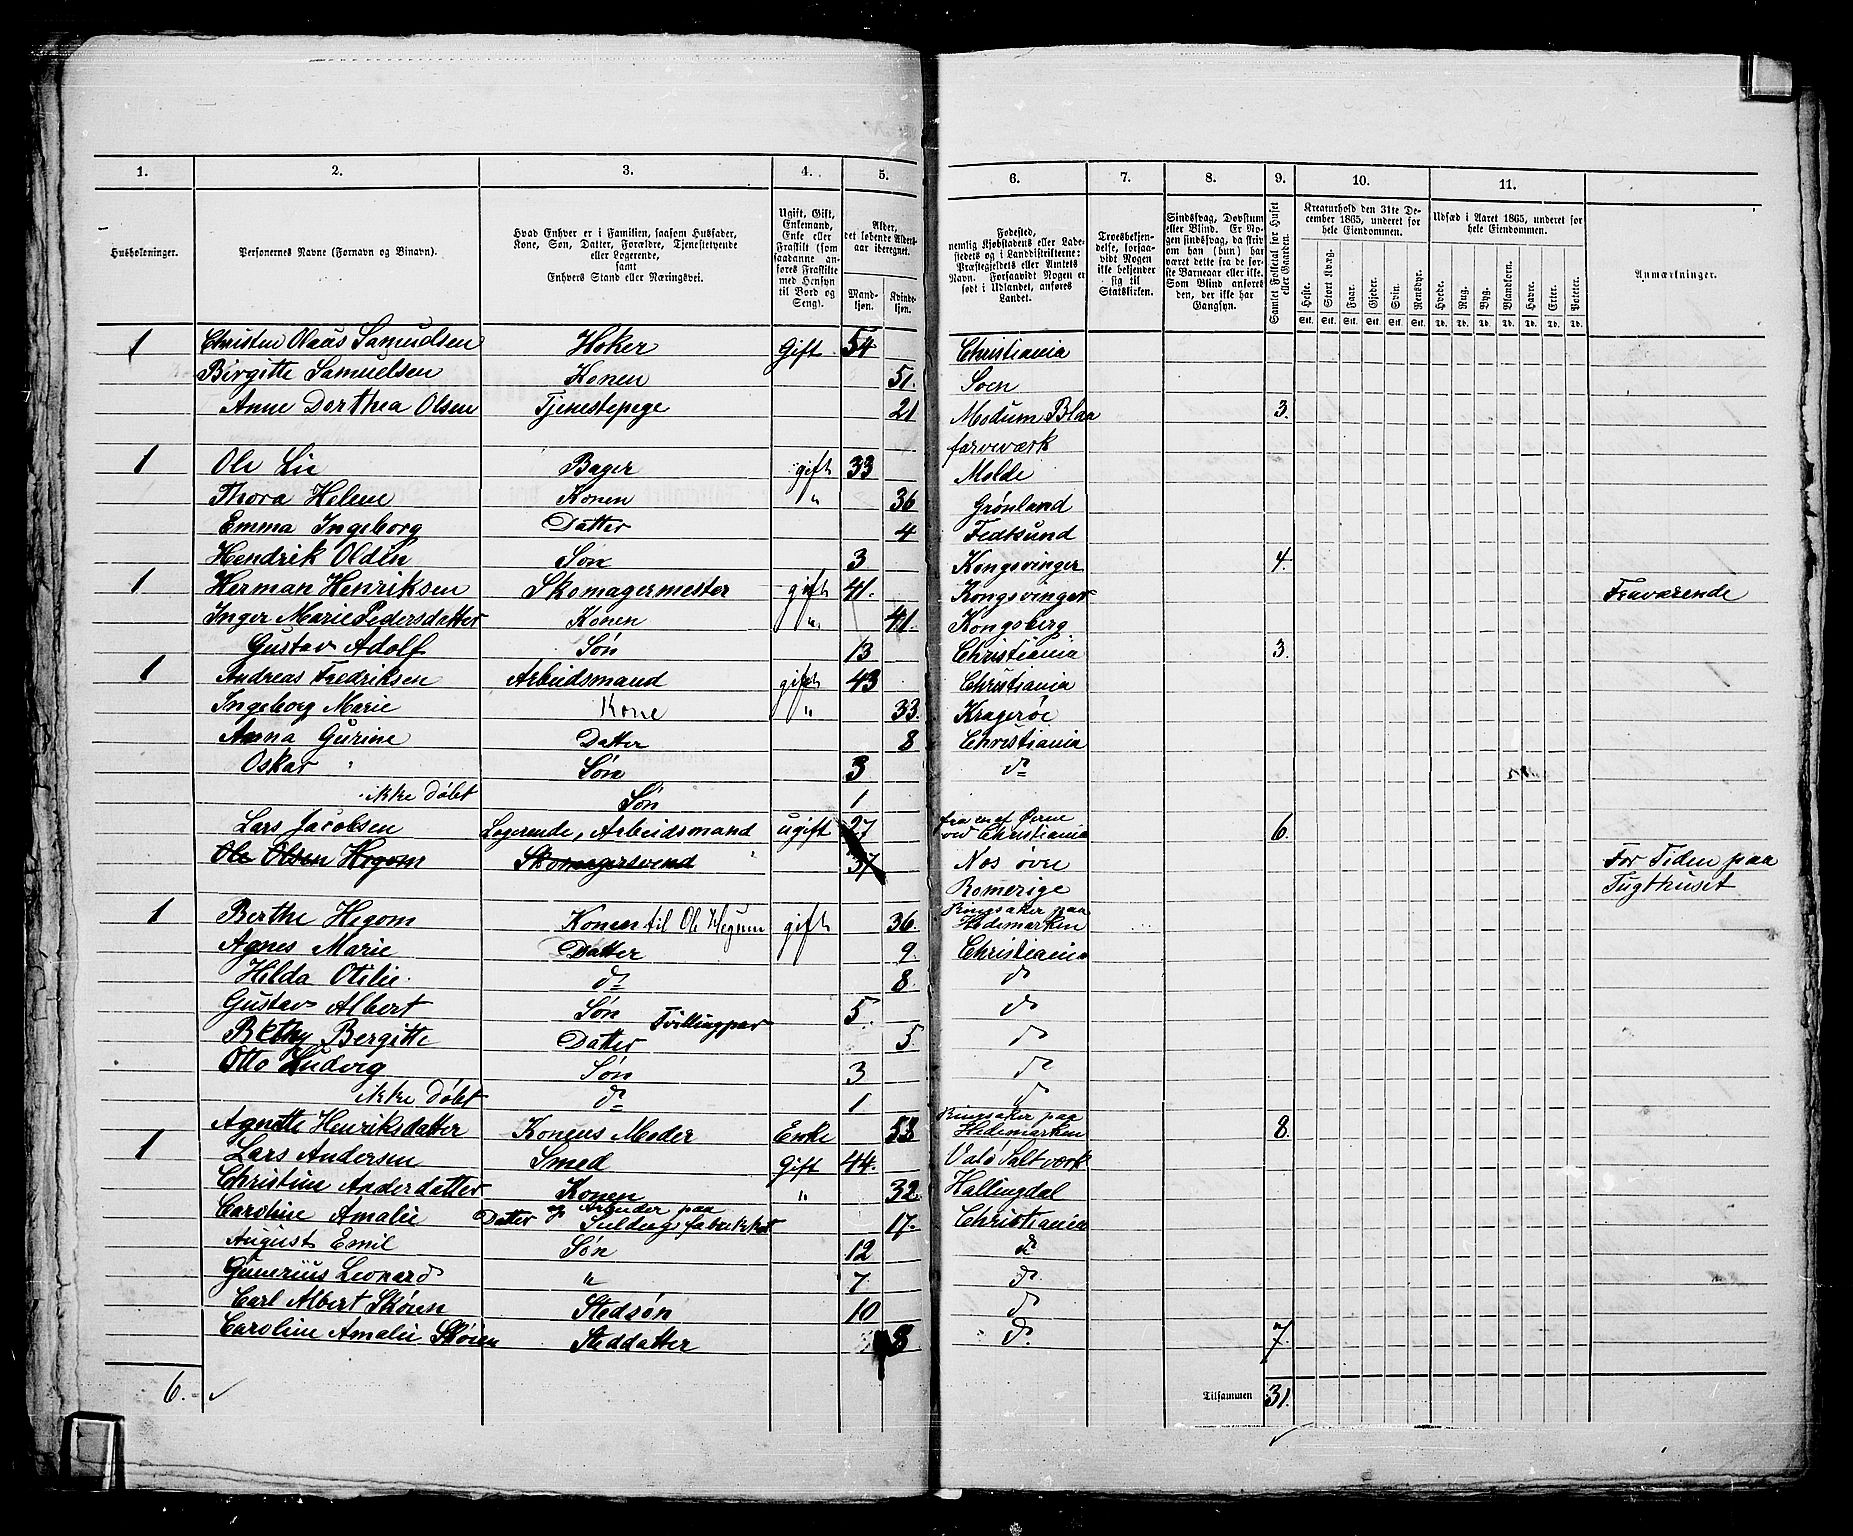 1. 2. 3. 4. 5. 6. 7. 8. 9. 10. 11.
Husholdninger. Personernes Navne (Fornavn og Binavn). Hvad Enhver er i Familien, saasom Husfader, Kone, Søn, Datter, Forældre, Tjenestetyende eller Logerende, samt Enhvers Stand eller Næringsvei. Ugift, Gift, Enkemand, Enke eller Fraskilt (som saadanne anføres Fraskilte med Hensyn til Bord og Seng). Alder, det løbende Aldersaar iberegnet. Mandkjøn. Kvindekjøn. Fødested, nemlig Kjøbstadens eller Ladestedets og i Landdistrikterne: Præstegjeldets eller Amtets Navn. Forsaavidt Nogen er født i Udlandet, anføres Landet. Troesbekjendelse, forsaavidt Nogen ikke bekjender sig til Statskirken. Sindssvag, Døvstum eller Blind. Er Nogen sindssvag, da skriv om han (hun) har været dette fra de første Barneaar eller ikke. Som Blind anføres den, der ikke har Gangsyn. Samlet Folketal for Huset eller Gaarden. Kreaturhold den 31te December 1865, underet for hele Eiendommen. Udsæd i Aaret 1865, underet for hele Eiendommen. Anmærkninger.
Heste. Stort Kvæg. Faar. Gjeder. Svin. Rensdyr. Hvede. Rug. Byg. Blandkorn. Havre. Erter. Poteter.
Stk. Stk. Stk. Stk. Stk. Stk. Td. Td. Td. Td. Td. Td. Td.
1 Christen Olaus Samuelsen Høker Gift 54 Christiania
Birgitte Samuelsen Konen 51. Soen
Anne Dorthea Olsen Tjenestepige 21 Modum Blaa 3.
farveværk
1 Ole Lie Bager gift 33 Molde
Thora Helene Konen " 36 Grønland
Emma Ingeborg Datter 4 Fedtsund
Hendrik Olden Søn 3 Kongsvinger 4.
1 Herman Henriksen Skomagermester gift 41. Kongsvinger Fraværende
Inger Marie Pedersdatter Konen " 41. Kongsberg
Gustav Adolf Søn 13 Christiania 3.
1 Andreas Fredriksen Arbeidsmand gift 43 Christiania
Ingeborg Marie Kone " 33. Kragerøe
Anna Gurine Datter 8 Christiania
Oskar " Søn 3 do
ikke Døbt Søn 1
Lars Jacobsen Logerende, Arbeidsmand ugift 27 fra en af Øerne ved Christiania 6.
Ole Olsen Hegom Skomagersvend " 37 Nos øvre For Tiden paa
Romerige Tugthuset
1 Berthe Hegom Konen til Ole Hegum gift 36. Ringsaker paa Hedemarken
Agnes Marie Datter 9. Christiania
Hilda Otilie. do 8. do
Gustav Albert Søn Tvillingpar 5. do
Bethy Bergitte Datter 5 do
Otto Ludvig Søn 3 do
ikke Døbt do 1 do
Agnette Henriksdatter Konens Moder Enke 53 Ringsaker paa Hedemarken 8.
1 Lars Andersen Smed Gift 44. Valø Saltværk
Christine Andersdatter Konen " 32 Hallingdal
Caroline Amalie Datter og Arbeider paa Seildugsfabrikket 17. Christiania
August Emil Søn 12 do
Gunerius Leonard " 7. do.
Carl Albert Skøien Stedsøn 10 do
Caroline Amalie Skøien Steddatter 8 do. 7.
6. ✓ Tilsammen 31.
✓